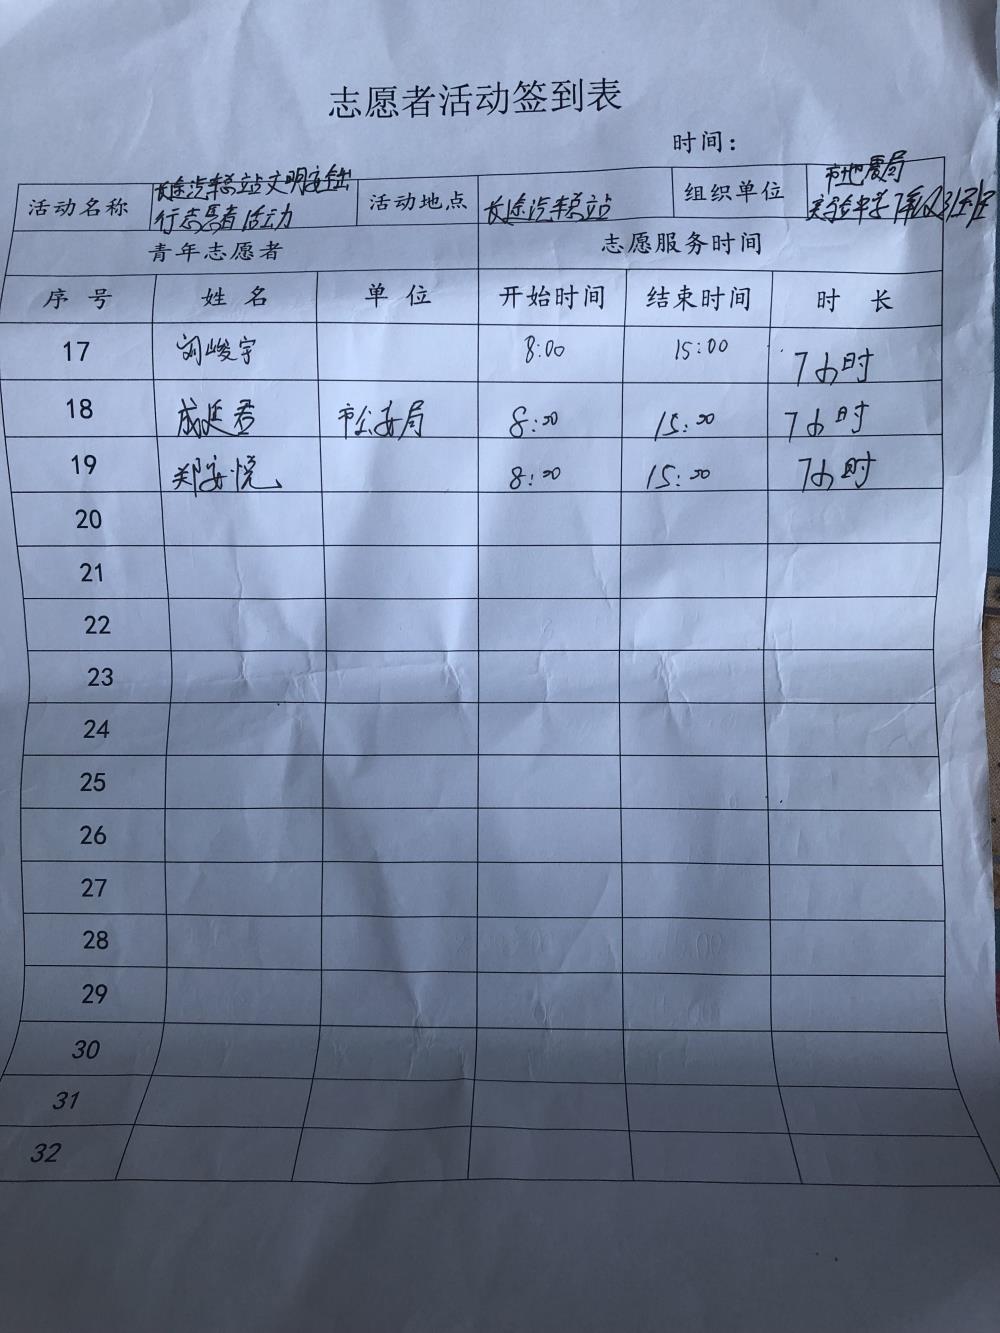 志愿者活动签到表
时间：
活动名称 长途汽车总站文明安全出行志愿者活动 活动地点 长途汽车总站 组织单位 市地震局 实验中学7年级31班
青年志愿者 志愿服务时间
序号 姓名 单位 开始时间 结束时间 时长
17 刘峻宇 8:00 15:00 7小时
18 成廷君 市公安局 8:00 15:00 7小时
19 郑安悦 8:00 15:00 7小时
20
21
22
23
24
25
26
27
28
29
30
31
32